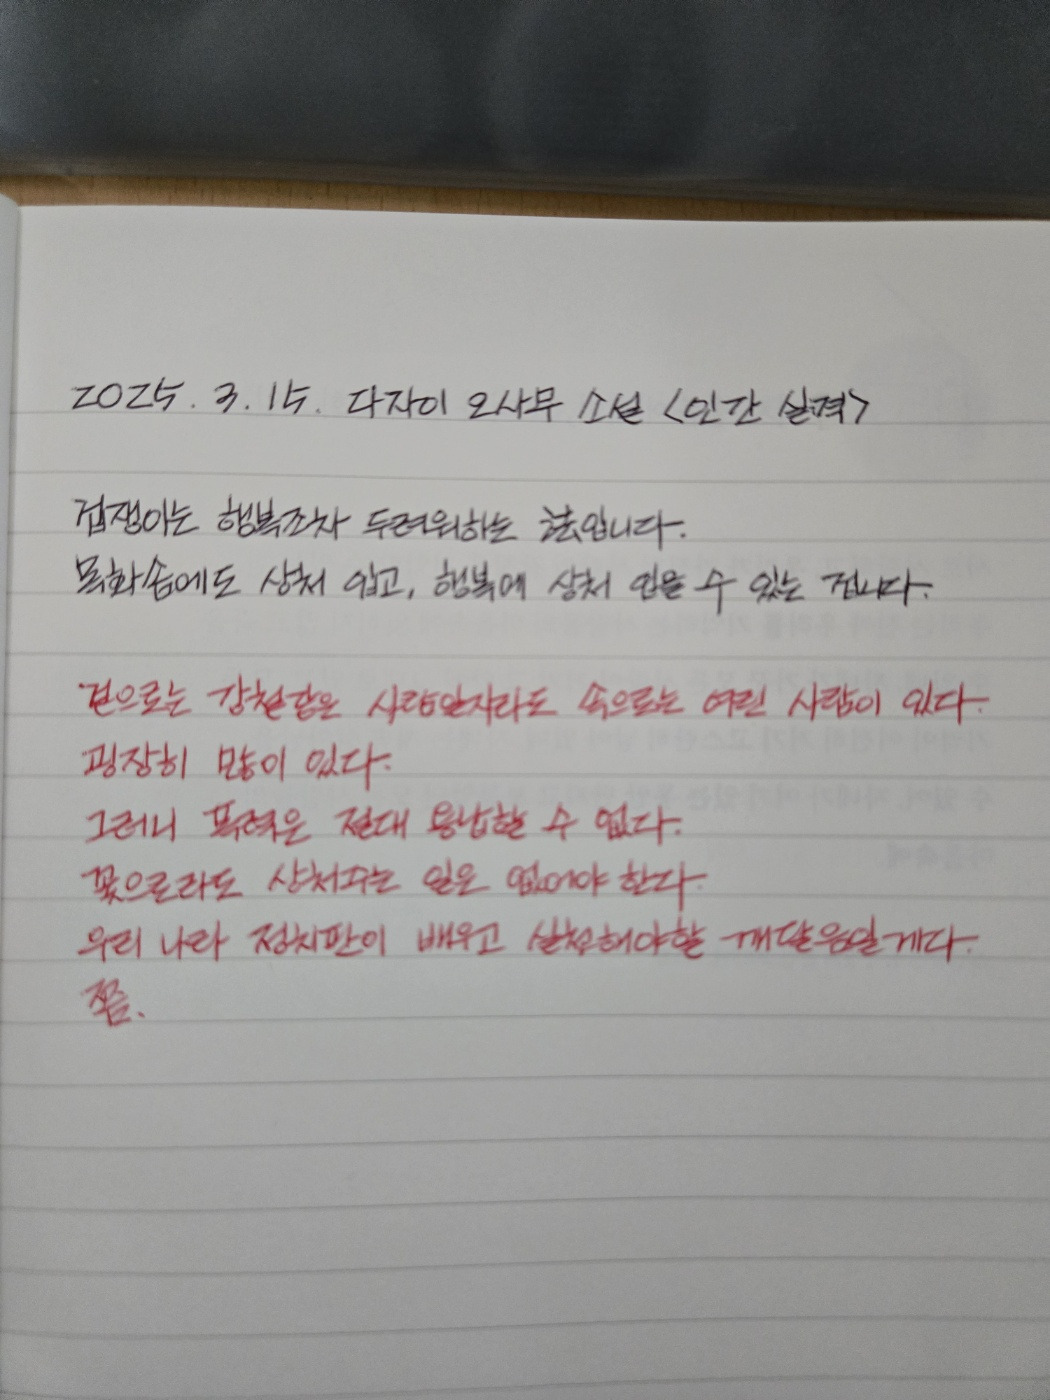 2025. 3. 15. 다자이 오사무 소설 <인간 실격>
겁쟁이는 행복조차 두려워하는 법입니다.
목화솜에도 상처 입고, 행복에 상처 입을 수 있는 겁니다.
겉으로는 강철같은 사람일지라도 속으로는 여린 사람이 있다.
굉장히 많이 있다.
그러니 폭력은 절대 용납할 수 없다.
꽃으로라도 상처주는 일은 없어야 한다.
우리 나라 정치판이 배우고 실천해야할 깨달음일게다.
쯥.